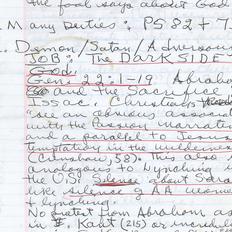 the fool says about God
M any deities: PS 82 + 7
D. Demon/Satan/Adversary
JOB: The DARK SIDE
God.
Gen. 22:1-19 Abraham
and the Sacrifice
Issac. Christians
"see an obvious associat
with the Passion narrative
and a parallel to Jesus
temptation in the wilderness
(Crenshaw, 58). This also
analogous to lynching in
the US; Silence about Sarah
like silence of AA women
+ lynching.
No protest from Abraham as
in V. Kant (215) or incredul